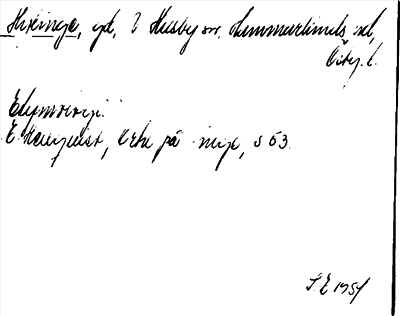 Hyringe, gd, i Husby sn, Hammarkinds hd,
Östg. l.
Etymologi.
E. Hellquist, Ortn. på -inge, s 53.
S. E. 1951